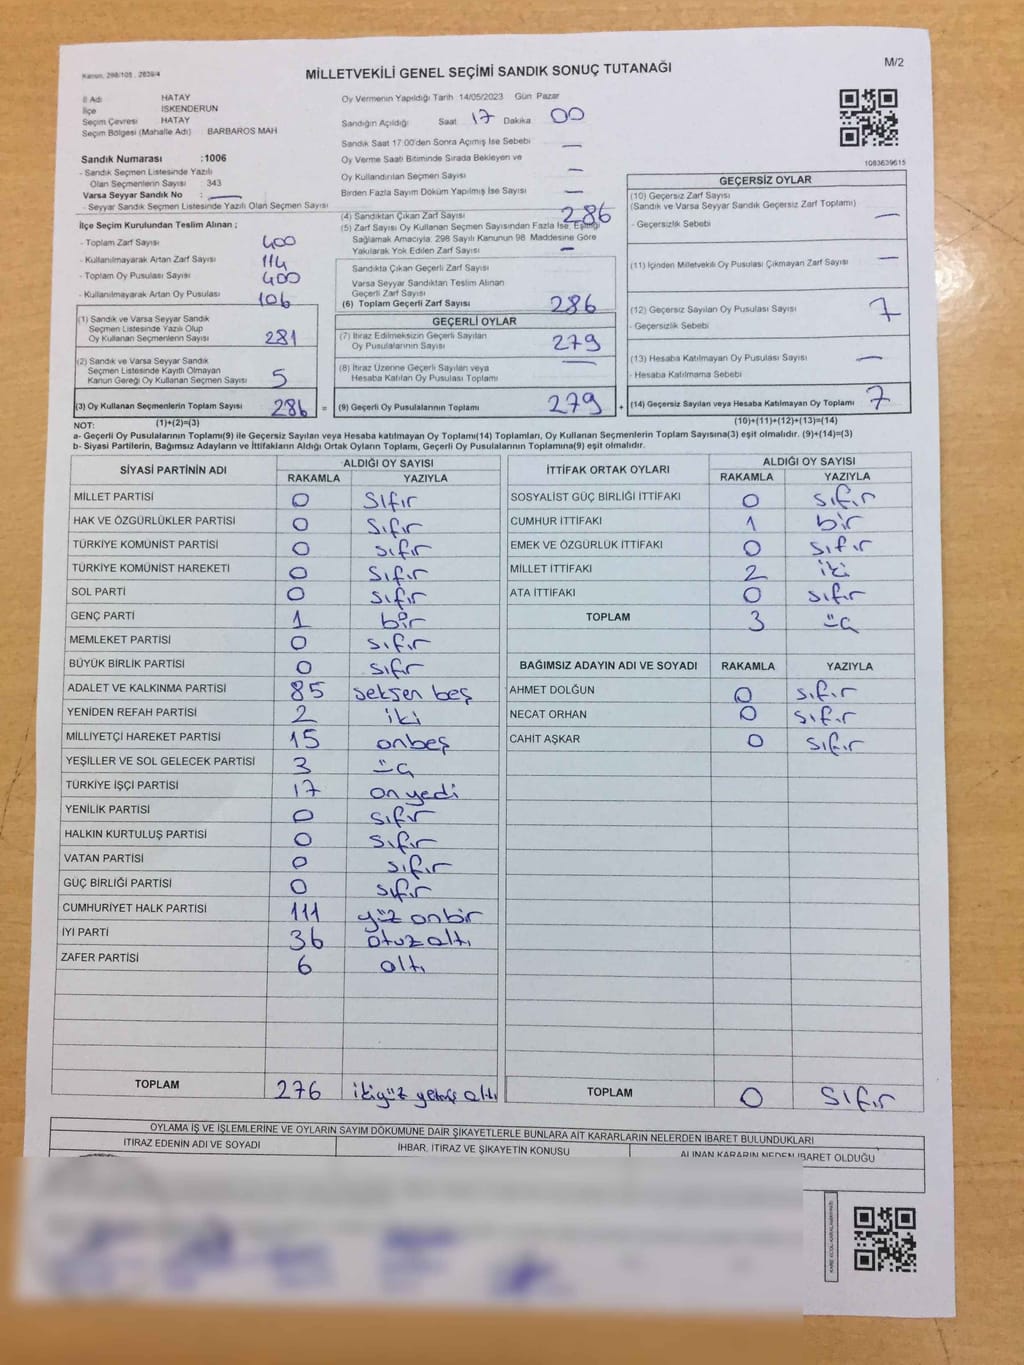 Kanun, 298/105 , 2839/4
MİLLETVEKİLİ GENEL SEÇİMİ SANDIK SONUÇ TUTANAĞI
M/2
İl Adı HATAY
İlçe İSKENDERUN
Seçim Çevresi HATAY
Seçim Bölgesi (Mahalle Adı) BARBAROS MAH
Sandık Numarası :1006
- Sandık Seçmen Listesinde Yazılı
Olan Seçmenlerin Sayısı : 343
Varsa Seyyar Sandık No : —
- Seyyar Sandık Seçmen Listesinde Yazılı Olan Seçmen Sayısı
İlçe Seçim Kurulundan Teslim Alınan ;
- Toplam Zarf Sayısı 400
- Kullanılmayarak Artan Zarf Sayısı 114
- Toplam Oy Pusulası Sayısı 400
- Kullanılmayarak Artan Oy Pusulası 106
(1) Sandık ve Varsa Seyyar Sandık
Seçmen Listesinde Yazılı Olup
Oy Kullanan Seçmenlerin Sayısı 281
(2) Sandık ve Varsa Seyyar Sandık
Seçmen Listesinde Kayıtlı Olmayan
Kanun Gereği Oy Kullanan Seçmen Sayısı 5
(3) Oy Kullanan Seçmenlerin Toplam Sayısı 286 =
Oy Vermenin Yapıldığı Tarih 14/05/2023 Gün Pazar
Sandığın Açıldığı Saat 17 Dakika 00
Sandık Saat 17:00'den Sonra Açımış İse Sebebi —
Oy Verme Saati Bitiminde Sırada Bekleyen ve
Oy Kullandırılan Seçmen Sayısı —
Birden Fazla Sayım Döküm Yapılmış İse Sayısı —
(4) Sandıktan Çıkan Zarf Sayısı 286
(5) Zarf Sayısı Oy Kullanan Seçmen Sayısından Fazla İse, Eşitliği
Sağlamak Amacıyla; 298 Sayılı Kanunun 98. Maddesine Göre
Yakılarak Yok Edilen Zarf Sayısı —
Sandıkta Çıkan Geçerli Zarf Sayısı
Varsa Seyyar Sandıktan Teslim Alınan
Geçerli Zarf Sayısı
(6) Toplam Geçerli Zarf Sayısı 286
GEÇERLİ OYLAR
(7) İtiraz Edilmeksizin Geçerli Sayılan
Oy Pusulalarının Sayısı 279
(8) İtiraz Üzerine Geçerli Sayılan veya
Hesaba Katılan Oy Pusulası Toplamı —
(9) Geçerli Oy Pusulalarının Toplamı 279 +
1083639615
GEÇERSİZ OYLAR
(10) Geçersiz Zarf Sayısı
(Sandık ve Varsa Seyyar Sandık Geçersiz Zarf Toplamı) —
- Geçersizlik Sebebi
(11) İçinden Milletvekili Oy Pusulası Çıkmayan Zarf Sayısı —
(12) Geçersiz Sayılan Oy Pusulası Sayısı 7
- Geçersizlik Sebebi
(13) Hesaba Katılmayan Oy Pusulası Sayısı —
- Hesaba Katılmama Sebebi
(14) Geçersiz Sayılan veya Hesaba Katılmayan Oy Toplamı 7
NOT: (1)+(2)=(3) (10)+(11)+(12)+(13)=(14)
a- Geçerli Oy Pusulalarının Toplamı(9) ile Geçersiz Sayılan veya Hesaba katılmayan Oy Toplamı(14) Toplamları, Oy Kullanan Seçmenlerin Toplam Sayısına(3) eşit olmalıdır. (9)+(14)=(3)
b- Siyasi Partilerin, Bağımsız Adayların ve İttifakların Aldığı Ortak Oyların Toplamı, Geçerli Oy Pusulalarının Toplamına(9) eşit olmalıdır.
SİYASİ PARTİNİN ADI ALDIĞI OY SAYISI
RAKAMLA YAZIYLA
MİLLET PARTİSİ 0 sıfır
HAK VE ÖZGÜRLÜKLER PARTİSİ 0 sıfır
TÜRKİYE KOMÜNİST PARTİSİ 0 sıfır
TÜRKİYE KOMÜNİST HAREKETİ 0 sıfır
SOL PARTİ 0 sıfır
GENÇ PARTİ 1 bir
MEMLEKET PARTİSİ 0 sıfır
BÜYÜK BİRLİK PARTİSİ 0 sıfır
ADALET VE KALKINMA PARTİSİ 85 seksen beş
YENİDEN REFAH PARTİSİ 2 iki
MİLLİYETÇİ HAREKET PARTİSİ 15 onbeş
YEŞİLLER VE SOL GELECEK PARTİSİ 3 üç
TÜRKİYE İŞÇİ PARTİSİ 17 onyedi
YENİLİK PARTİSİ 0 sıfır
HALKIN KURTULUŞ PARTİSİ 0 sıfır
VATAN PARTİSİ 0 sıfır
GÜÇ BİRLİĞİ PARTİSİ 0 sıfır
CUMHURİYET HALK PARTİSİ 111 yüz onbir
İYİ PARTİ 36 otuzaltı
ZAFER PARTİSİ 6 altı
TOPLAM 276 ikiyüz yetmiş altı
İTTİFAK ORTAK OYLARI ALDIĞI OY SAYISI
RAKAMLA YAZIYLA
SOSYALİST GÜÇ BİRLİĞİ İTTİFAKI 0 sıfır
CUMHUR İTTİFAKI 1 bir
EMEK VE ÖZGÜRLÜK İTTİFAKI 0 sıfır
MİLLET İTTİFAKI 2 iki
ATA İTTİFAKI 0 sıfır
TOPLAM 3 üç
BAĞIMSIZ ADAYIN ADI VE SOYADI RAKAMLA YAZIYLA
AHMET DOLĞUN 0 sıfır
NECAT ORHAN 0 sıfır
CAHİT AŞKAR 0 sıfır
TOPLAM 0 sıfır
OYLAMA İŞ VE İŞLEMLERİNE VE OYLARIN SAYIM DÖKÜMÜNE DAİR ŞİKAYETLERLE BUNLARA AİT KARARLARIN NELERDEN İBARET BULUNDUKLARI
İTİRAZ EDENİN ADI VE SOYADI İHBAR, İTİRAZ VE ŞİKAYETİN KONUSU ALINAN KARARIN NEDEN İBARET OLDUĞU